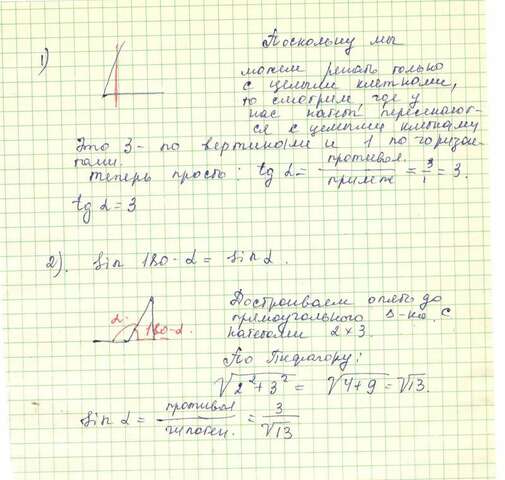 1)
Поскольку мы
можем решать только
с целыми клетками,
то смотрим, где у
нас катет пересекают-
ся с целыми клетками
Это 3 - по вертикали и 1 по горизон-
тали.
теперь просто: tg α = противол. / прилеж = 3/1 = 3.
tg α = 3
2). sin 180 - α = sin α.
α 180-α.
Достраиваем опять до
прямоугольного Δ-ка. с
катетами 2 × 3.
По Пифагору:
√2² + 3² = √4+9 = √13.
sin α = противол / гипотен. = 3/√13